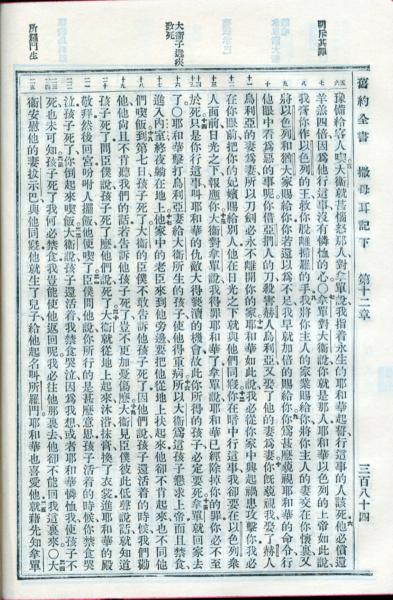 舊約全書 撒母耳記下 第十二章 三百八十四
明斥其罪
大衛子患疾致死
所羅門生
豫備給客人喫○大衛就甚惱怒那人對拿單說我指着永生的耶和華起誓行這事的人該死他必償還
羊羔四倍因爲他行這事沒有憐恤的心○拿單對大衛說你就是那人耶和華以色列的上帝如此說
我膏你作以色列的王救你脫離掃羅的手我將你主人的家業賜給你將你主人的妻交在你懷裏又
將以色列和猶大家賜給你你若還以爲不足我早就加倍的賜給你你爲甚麼藐視耶和華的命令行
他眼中看爲惡的事呢你借亞捫人的刀殺害赫人烏利亞又娶了他的妻爲妻你旣藐視我娶了赫人
烏利亞的妻爲妻所以刀劍必永不離開你的家耶和華如此說我必從你家中興起禍患攻擊你我必
在你眼前把你的妃嬪賜給別人他在日光之下就與他們同寢你在暗中行這事我卻要在以色列衆
人面前日光之下報應你大衛對拿單說我得罪耶和華了拿單說耶和華已經除掉你的罪你必不至
於死只是你行這事叫耶和華的仇敵大得褻瀆的機會故此你所得的孩子必定要死拿單就回家去
了○耶和華擊打烏利亞妻給大衛所生的孩子使他得重病所以大衛爲這孩子懇求上帝而且禁食
進入內室終夜躺在地上他家中的老臣來到他旁邊要把他從地上扶起來他卻不肯起來也不同他
們喫飯到第七日孩子死了大衛的臣僕不敢告訴他孩子死了因他們說孩子還活着的時候我們勸
他他尚且不肯聽我們的話若告訴他孩子死了豈不更加憂傷麼大衛見臣僕彼此低聲說話就知道
孩子死了問臣僕說孩子死了麼他們說死了大衛就從地上起來沐浴抹膏換了衣裳進耶和華的殿
敬拜然後回宮吩咐人擺飯他便喫了臣僕問他說你所行的是甚麼意思孩子活着的時候你禁食哭
泣孩子死了你倒起來喫飯大衛說孩子還活着我禁食哭泣因爲我想或者耶和華憐恤我使孩子不
死也未可知孩子死了我何必禁食我豈能使他返回呢我必往他那裏去他卻不能回我這裏來○大
衛安慰他的妻拔示巴與他同寢他就生了兒子給他起名叫所羅門耶和華也喜愛他就藉先知拿單